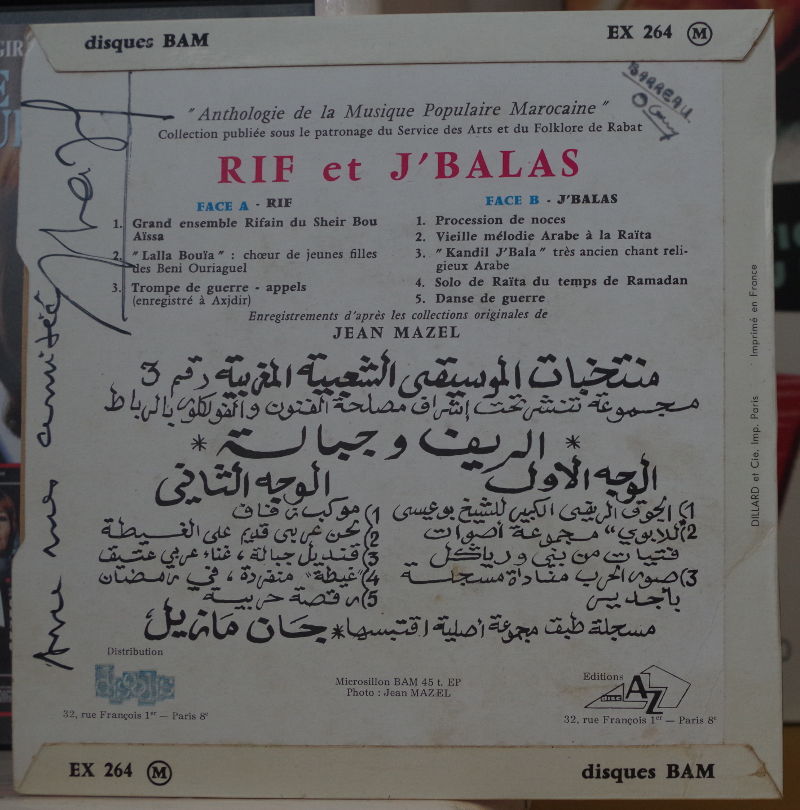 disques BAM
EX 264 M
BARREAU
"Anthologie de la Musique Populaire Marocaine"
Collection publiée sous le patronage du Service des Arts et du Folklore de Rabat
RIF et J'BALAS
FACE A - RIF
1. Grand ensemble Rifain du Sheir Bou
Aïssa
2. "Lalla Bouïa" : chœur de jeunes filles
des Beni Ouriaguel
3. Trompe de guerre - appels
(enregistré à Axjdir)
FACE B - J'BALAS
1. Procession de noces
2. Vieille mélodie Arabe à la Raïta
3. "Kandil J'Bala" très ancien chant reli-
gieux Arabe
4. Solo de Raïta du temps de Ramadan
5. Danse de guerre
Enregistrements d'après les collections originales de
JEAN MAZEL
منتخبات الموسيقى الشعبية المغربية رقم 3
مجموعة تنشر تحت إشراف مصلحة الفنون والفولكلور بالرباط
* الريف وجبالة *
الوجه الأول
1) الجوق الريفي الكبير للشيخ بوعيسى
2) للابوي" مجموعة أصوات
فتيات من بني ورياكل
3) صور الحرب مناداة مسجلة
باجدير
الوجه الثاني
1) موكب زفاف
2) لحن عربي قديم على الغيطة
3) قنديل جبالة، غناء عربي عتيق
4) "غيطة" منفردة، في رمضان
5) رقصة حربية
مسجلة طبق مجموعة أصلية اقتبسها * جان مازيل
Avec mes amitiés
Distribution
32, rue François 1er — Paris 8e
Microsillon BAM 45 t. EP
Photo : Jean MAZEL
Editions
disc AZ
32, rue François 1er — Paris 8e
DILLARD et Cie. Imp. Paris Imprimé en France
EX 264 M
disques BAM